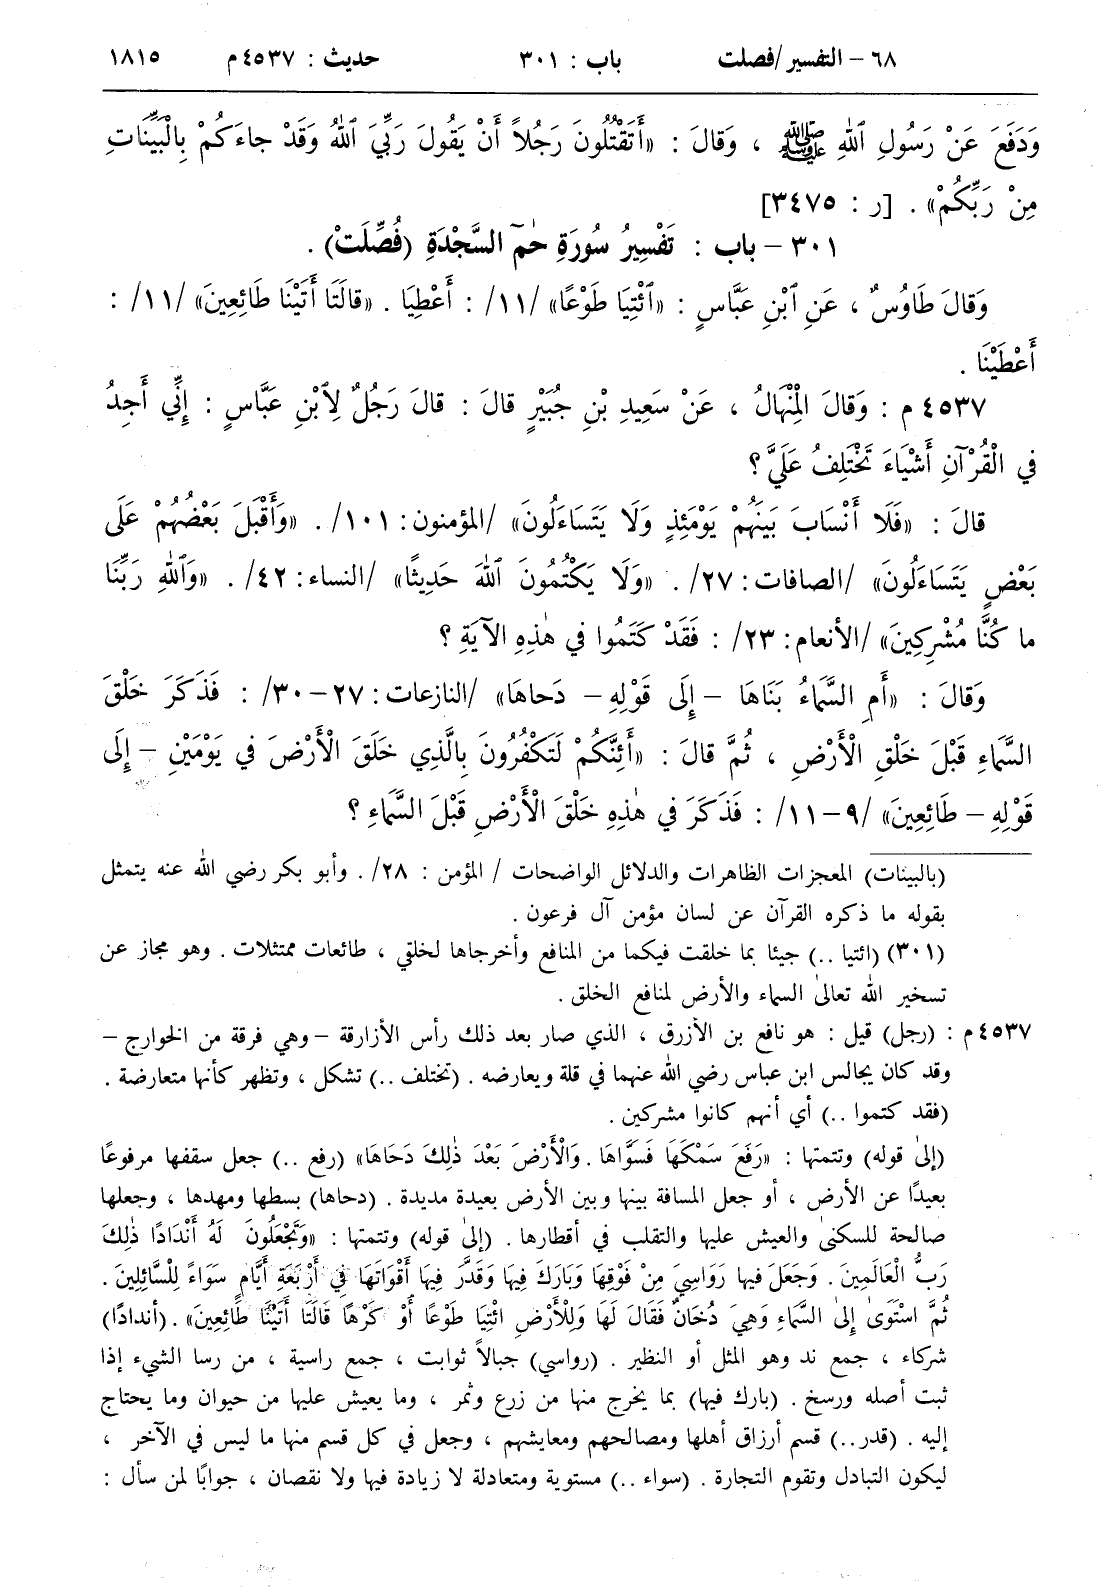 ٦٨ - التفسير/فصلت باب : ٣٠١ حديث : ٤٥٣٧م ١٨١٥
وَدَفَعَ عَنْ رَسُولِ ٱللهِ ﷺ ، وَقالَ : «أَتَقْتُلُونَ رَجُلاً أَنْ يَقُولَ رَبِّيَ ٱللهُ وَقَدْ جاءَكُمْ بِالْبَيِّنَاتِ
مِنْ رَبِّكُمْ» . [ر : ٣٤٧٥]
٣٠١ - باب : تَفْسِيرُ سُورَةِ حٰمۤ السَّجْدَةِ (فُصِّلَتْ) .
وَقالَ طَاوُسٌ ، عَنِ ٱبْنِ عَبَّاسٍ : «ٱئْتِيَا طَوْعًا» /١١/ : أَعْطِيَا . «قالَتَا أَتَيْنَا طَائِعِينَ» /١١/ :
أَعْطَيْنَا .
٤٥٣٧ م : وَقالَ الْمِنْهَالُ ، عَنْ سَعِيدِ بْنِ جُبَيْرٍ قالَ : قالَ رَجُلٌ لِٱبْنِ عَبَّاسٍ : إِنِّي أَجِدُ
في الْقُرْآنِ أَشْيَاءَ تَخْتَلِفُ عَلَيَّ ؟
قالَ : «فَلَا أَنْسَابَ بَيْنَهُمْ يَوْمَئِذٍ وَلَا يَتَسَاءَلُونَ» /المؤمنون: ١٠١/ . «وَأَقْبَلَ بَعْضُهُمْ عَلَى
بَعْضٍ يَتَسَاءَلُونَ» /الصافات: ٢٧/ . «وَلَا يَكْتُمُونَ ٱللهَ حَدِيثًا» /النساء: ٤٢/ . «وَٱللهِ رَبِّنَا
ما كُنَّا مُشْرِكِينَ» /الأنعام: ٢٣/ : فَقَدْ كَتَمُوا في هٰذِهِ الآيَةِ ؟
وَقالَ : «أَمِ السَّمَاءُ بَنَاهَا - إِلَى قَوْلِهِ - دَحاهَا» /النازعات: ٢٧-٣٠/ : فَذَكَرَ خَلْقَ
السَّمَاءِ قَبْلَ خَلْقِ الْأَرْضِ ، ثُمَّ قالَ : «أَئِنَّكُمْ لَتَكْفُرُونَ بِالَّذِي خَلَقَ الْأَرْضَ في يَوْمَيْنِ - إِلَى
قَوْلِهِ - طَائِعِينَ» /٩-١١/ : فَذَكَرَ في هٰذِهِ خَلْقَ الْأَرْضِ قَبْلَ السَّمَاءِ ؟
(بالبينات) المعجزات الظاهرات والدلائل الواضحات / المؤمن : ٢٨/ . وأبو بكر رضي الله عنه يتمثل
بقوله ما ذكره القرآن عن لسان مؤمن آل فرعون .
(٣٠١) (ائتيا ..) جيئا بما خلقت فيكما من المنافع وأخرجاها لخلقي ، طائعات ممتثلات . وهو مجاز عن
تسخير الله تعالىٰ السماء والأرض لمنافع الخلق .
٤٥٣٧ م : (رجل) قيل : هو نافع بن الأزرق ، الذي صار بعد ذلك رأس الأزارقة - وهي فرقة من الخوارج -
وقد كان يجالس ابن عباس رضي الله عنهما في قلة ويعارضه . (تختلف ..) تشكل ، وتظهر كأنها متعارضة .
(فقد كتموا ..) أي أنهم كانوا مشركين .
(إلىٰ قوله) وتتمتها : «رَفَعَ سَمْكَهَا فَسَوَّاهَا . وَالْأَرْضَ بَعْدَ ذٰلِكَ دَحَاهَا» (رفع ..) جعل سقفها مرفوعًا
بعيدًا عن الأرض ، أو جعل المسافة بينها وبين الأرض بعيدة مديدة . (دحاها) بسطها ومهدها ، وجعلها
صالحة للسكنىٰ والعيش عليها والتقلب في أقطارها . (إلىٰ قوله) وتتمتها : «وَتَجْعَلُونَ لَهُ أَنْدَادًا ذٰلِكَ
رَبُّ الْعَالَمِينَ . وَجَعَلَ فيها رَوَاسِيَ مِنْ فَوْقِهَا وَبَارَكَ فِيهَا وَقَدَّرَ فِيهَا أَقْوَاتَهَا فِي أَرْبَعَةِ أَيَّامٍ سَوَاءً لِلسَّائِلِينَ .
ثُمَّ اسْتَوَىٰ إِلىٰ السَّمَاءِ وَهِيَ دُخَانٌ فَقَالَ لَهَا وَلِلْأَرْضِ ائْتِيَا طَوْعًا أَوْ كَرْهًا قَالَتَا أَتَيْنَا طَائِعِينَ» . (أندادًا)
شركاء ، جمع ند وهو المثل أو النظير . (رواسي) جبالاً ثوابت ، جمع راسية ، من رسا الشيء إذا
ثبت أصله ورسخ . (بارك فيها) بما يخرج منها من زرع وثمر ، وما يعيش عليها من حيوان وما يحتاج
إليه . (قدر..) قسم أرزاق أهلها ومصالحهم ومعايشهم ، وجعل في كل قسم منها ما ليس في الآخر ،
ليكون التبادل وتقوم التجارة . (سواء ..) مستوية ومتعادلة لا زيادة فيها ولا نقصان ، جوابًا لمن سأل :